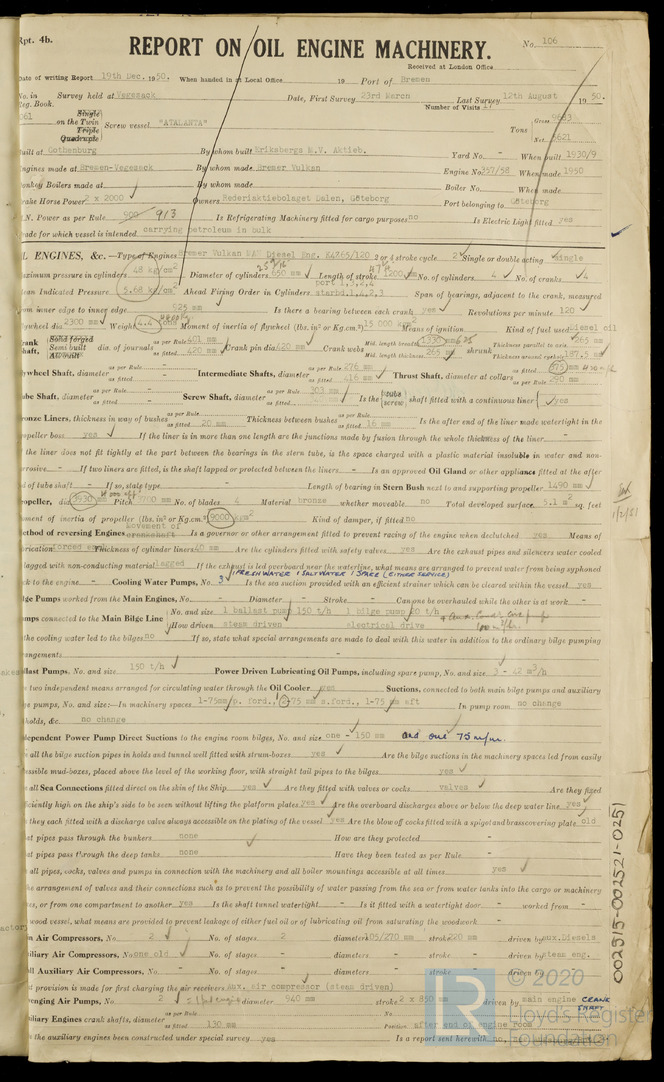 Rpt. 4b.
REPORT ON OIL ENGINE MACHINERY.
No. 106
Received at London Office
Date of writing Report 19th Dec. 1950. When handed in at Local Office 19 Port of Bremen
No. in Survey held at Vegesack Date, First Survey 23rd March Last Survey 12th August 1950.
Reg. Book. Number of Visits
Single
on the Twin
Triple
Quadruple
Screw vessel "ATALANTA"
Tons Gross 9683
Net 5621
Built at Gothenburg By whom built Eriksbergs M.V. Aktieb. Yard No. - When built 1930/9
Engines made at Bremen-Vegesack By whom made Bremer Vulkan Engine No. 257/58 When made 1950
Donkey Boilers made at By whom made Boiler No. When made
Brake Horse Power 2 x 2000 Owners Rederiaktiebolaget Dalen, Göteborg Port belonging to Göteborg
N. Power as per Rule 900 913 Is Refrigerating Machinery fitted for cargo purposes no Is Electric Light fitted yes
Trade for which vessel is intended carrying petroleum in bulk
OIL ENGINES, &c.—Type of Engines Bremer Vulkan MAN Diesel Eng. 2 or 4 stroke cycle 2 Single or double acting single
Maximum pressure in cylinders 48 kg/cm2 Diameter of cylinders 650 mm Length of stroke 1200 mm No. of cylinders 4 No. of cranks 4
Mean Indicated Pressure 5.68 kg/cm2 Ahead Firing Order in Cylinders port 1,3,2,4 starbd.1,4,2,3 Span of bearings, adjacent to the crank, measured
from inner edge to inner edge 825 mm Is there a bearing between each crank yes Revolutions per minute 120
Flywheel dia 2300 mm Weight 4.4 tons Moment of inertia of flywheel (lbs. in² or Kg.cm²) 15 000 Means of ignition Kind of fuel used diesel oil
Crank Shaft, Solid forged Semi built All built dia. of journals as per Rule 401 mm as fitted 420 mm Crank pin dia 420 mm Crank webs Mid. length breadth 1330 mm Mid. length thickness 265 mm shrunk Thickness parallel to axis 265 mm Thickness around eyehole 187.5 mm
Flywheel Shaft, diameter as per Rule - as fitted - Intermediate Shafts, diameter as per Rule 276 mm as fitted 416 mm Thrust Shaft, diameter at collars as per Rule 290 mm
Tube Shaft, diameter as per Rule as fitted Screw Shaft, diameter as per Rule 303 mm as fitted Is the {tube screw} shaft fitted with a continuous liner { yes
Bronze Liners, thickness in way of bushes as per Rule as fitted 20 mm Thickness between bushes as per Rule as fitted 16 mm Is the after end of the liner made watertight in the
propeller boss yes If the liner is in more than one length are the junctions made by fusion through the whole thickness of the liner -
If the liner does not fit tightly at the part between the bearings in the stern tube, is the space charged with a plastic material insoluble in water and non-
corrosive - If two liners are fitted, is the shaft lapped or protected between the liners - Is an approved Oil Gland or other appliance fitted at the after
end of tube shaft - If so, state type - Length of bearing in Stern Bush next to and supporting propeller 1490 mm
Propeller, dia 3930 mm Pitch 3700 mm No. of blades 4 Material bronze whether moveable no Total developed surface 5.1 m² sq. feet
Moment of inertia of propeller (lbs. in² or Kg.cm²) 9000 Kind of damper, if fitted no
Method of reversing Engines movement of crankshaft Is a governor or other arrangement fitted to prevent racing of the engine when declutched yes Means of
lubrication forced Thickness of cylinder liners 40 mm Are the cylinders fitted with safety valves yes Are the exhaust pipes and silencers water cooled
or lagged with non-conducting material lagged If the exhaust is led overboard near the waterline, what means are arranged to prevent water from being syphoned
back to the engine - Cooling Water Pumps, No. 3 1 FRESHWATER 1 SALTWATER 1 SPARE (EITHER SERVICE) Is the sea suction provided with an efficient strainer which can be cleared within the vessel yes
Bilge Pumps worked from the Main Engines, No. - Diameter - Stroke - Can one be overhauled while the other is at work -
Pumps connected to the Main Bilge Line {No. and size 1 ballast pump 150 t/h 1 bilge pump 20 t/h
How driven steam driven electrical drive
Is the cooling water led to the bilges no If so, state what special arrangements are made to deal with this water in addition to the ordinary bilge pumping
arrangements
Ballast Pumps, No. and size 150 t/h Power Driven Lubricating Oil Pumps, including spare pump, No. and size 3 - 42 m³/h
Are two independent means arranged for circulating water through the Oil Cooler yes Suctions, connected to both main bilge pumps and auxiliary
bilge pumps, No. and size:—In machinery spaces 1-75mm p. ford., 1-75 mm s.ford., 1-75 mm aft In pump room no change
In holds, &c. no change
Independent Power Pump Direct Suctions to the engine room bilges, No. and size one - 150 mm and one 75 m/m.
Are all the bilge suction pipes in holds and tunnel well fitted with strum-boxes yes Are the bilge suctions in the machinery spaces led from easily
accessible mud-boxes, placed above the level of the working floor, with straight tail pipes to the bilges yes
Are all Sea Connections fitted direct on the skin of the Ship yes Are they fitted with valves or cocks valves Are they fixed
sufficiently high on the ship's side to be seen without lifting the platform plates yes Are the overboard discharges above or below the deep water line yes
Are they each fitted with a discharge valve always accessible on the plating of the vessel yes Are the blow off cocks fitted with a spigot and brass covering plate old
What pipes pass through the bunkers none How are they protected -
What pipes pass through the deep tanks none Have they been tested as per Rule -
Are all pipes, cocks, valves and pumps in connection with the machinery and all boiler mountings accessible at all times yes
Is the arrangement of valves and their connections such as to prevent the possibility of water passing from the sea or from water tanks into the cargo or machinery
spaces, or from one compartment to another yes Is the shaft tunnel watertight - Is it fitted with a watertight door - worked from -
If a wood vessel, what means are provided to prevent leakage of either fuel oil or of lubricating oil from saturating the woodwork -
Main Air Compressors, No. 2 No. of stages 2 diameters 105/270 mm stroke 220 mm driven by aux.Diesels
Auxiliary Air Compressors, No. one old No. of stages - diameters - stroke - driven by steam eng.
Small Auxiliary Air Compressors, No. - No. of stages - diameters - stroke - driven by -
What provision is made for first charging the air receivers Aux. air compressor (steam driven)
Scavenging Air Pumps, No. 2 diameter 940 mm stroke 2 x 850 mm driven by main engine CRANK SHAFT
Auxiliary Engines crank shafts, diameter as per Rule as fitted 130 mm No. Position after end of engine room
Have the auxiliary engines been constructed under special survey yes Is a report sent herewith no,
1/2/51
002515-002521-0251
© 2020
Lloyd's Register
Foundation
LR